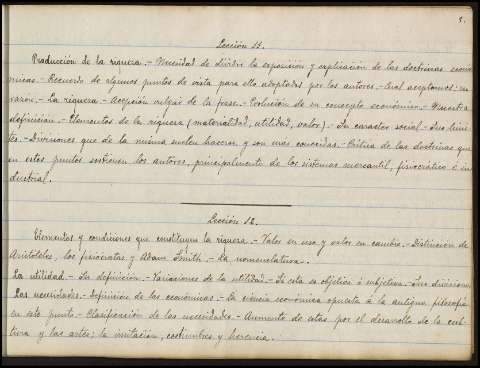 5.
Lección 11.
Producción de la riqueza.- Necesidad de dividir la exposición y explicación de las doctrinas econó-
micas.- Recuerdo de algunos puntos de vista para ello adoptados por los autores.- Cual aceptamos: su
razon.- La riqueza.- Acepción vulgar de la frase.- Evolución de su concepto económico.- Nuestra
definición.- Elementos de la riqueza (materialidad, utilidad, valor).- Su caracter social.- Sus lími-
tes.- Divisiones que de la misma suelen hacerse y son mas conocidas.- Crítica de las doctrinas que
en estos puntos sostienen los autores, principalmente de los sistemas mercantil, fisiocrático é in-
dustrial.
Lección 12.
Elementos y condiciones que constituyen la riqueza.- Valor en uso y valor en cambio.- Distinción de
Aristóteles, los fisiocratas y Adam Smith.- La nomenclatura.
La utilidad.- Su definición.- Variaciones de la utilidad.- Si esta es objetiva ó subjetiva.- Sus divisiones.
Las necesidades.- Definición de las económicas.- La ciencia económica opuesta á la antigua filosofía
en este punto.- Clasificación de las necesidades.- Aumento de estas por el desarrollo de la cul-
tura y las artes; la imitación, costumbres y herencia.